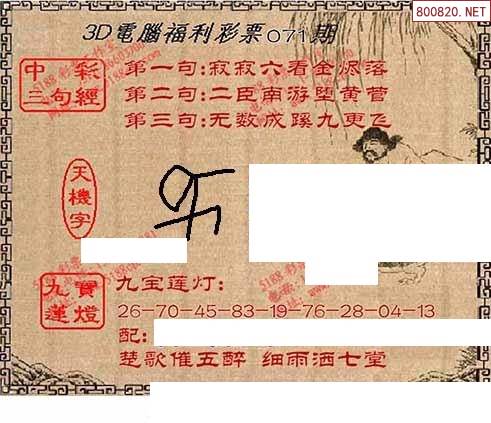 800820.NET
3D電腦福利彩票071期
中彩三句經
第一句:寂寂六看金烬落
第二句:二臣南游堕黄菅
第三句:无数成蹊九更飞
天機字
九寶蓮燈
九宝莲灯:
26-70-45-83-19-76-28-04-13
配:
楚歌催五醉 细雨洒七堂